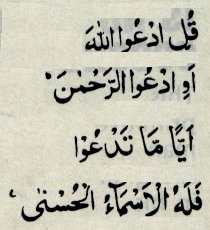 قُلِ ادْعُوا اللهَ
اَوِ ادْعُوا الرَّحْمٰنَ ۚ
اَيًّا مَّا تَدْعُوْا
فَلَهُ الْاَسْمَآءُ الْحُسْنٰى ۚ